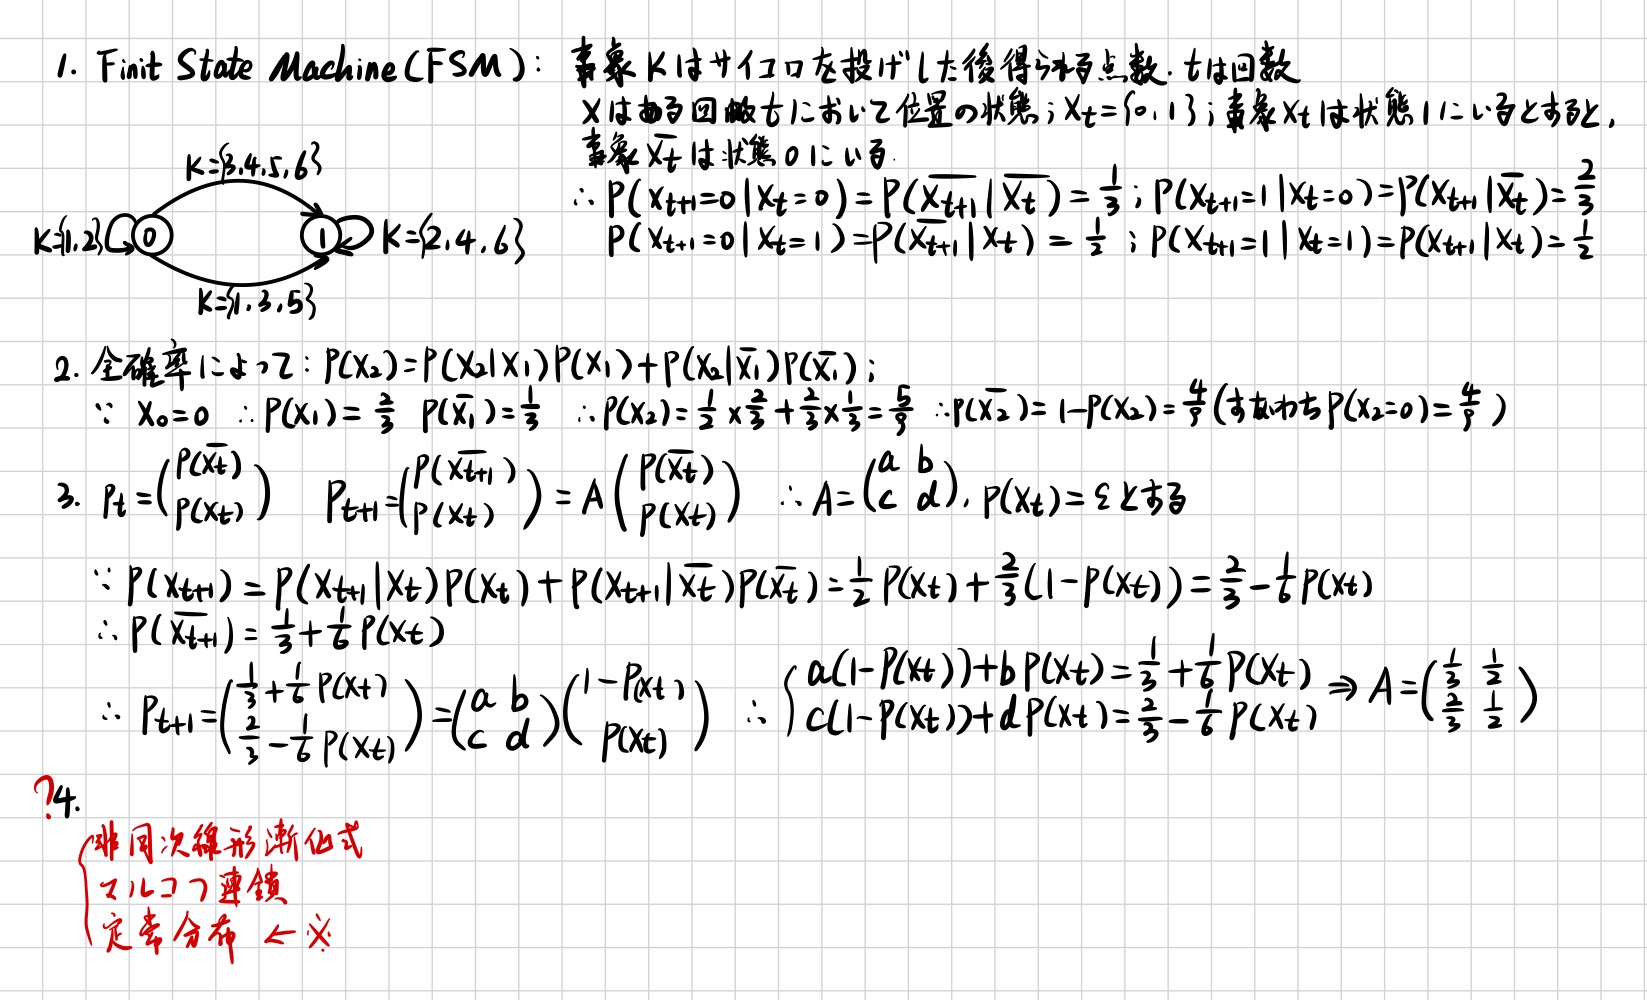 1. Finit State Machine (FSM): 事象Kはサイコロを投げした後得られる点数. tは回数
Xはある回数tにおいて位置の状態; Xt={0,1}; 事象Xtは状態1にいるとすると,
事象X̅t̅は状態0にいる.
∴ P(Xt+1=0|Xt=0)=P(X̅t̅+̅1̅|X̅t̅)=1/3; P(Xt+1=1|Xt=0)=P(Xt+1|X̅t̅)=2/3
P(Xt+1=0|Xt=1)=P(X̅t̅+̅1̅|Xt)=1/2; P(Xt+1=1|Xt=1)=P(Xt+1|Xt)=1/2
K={3,4,5,6}
K={1,2} 0 1 K={2,4,6}
K={1,3,5}
2. 全確率によって: P(X2)=P(X2|X1)P(X1)+P(X2|X̅1)P(X̅1);
∵ X0=0 ∴P(X1)=2/3 P(X̅1)=1/3 ∴P(X2)=1/2×2/3+2/3×1/3=5/9 ∴P(X̅2̅)=1-P(X2)=4/9(すなわちP(X2=0)=4/9)
3. Pt=(P(X̅t̅) P(Xt)) Pt+1=(P(X̅t̅+̅1̅) P(Xt))=A(P(X̅t̅) P(Xt)) ∴A=(a b c d), P(Xt)=εとする
∵ P(Xt+1)=P(Xt+1|Xt)P(Xt)+P(Xt+1|X̅t̅)P(X̅t̅)=1/2 P(Xt)+2/3(1-P(Xt))=2/3-1/6 P(Xt)
∴ P(X̅t̅+̅1̅)=1/3+1/6 P(Xt)
∴ Pt+1=(1/3+1/6 P(Xt) 2/3-1/6 P(Xt))=(a b c d)(1-P(Xt) P(Xt)) ∴ {a(1-P(Xt))+bP(Xt)=1/3+1/6 P(Xt) c(1-P(Xt))+dP(Xt)=2/3-1/6 P(Xt) ⇒ A=(1/3 1/2 2/3 1/2)
?4.
非同次線形漸化式
マルコフ連鎖
定常分布 ←※